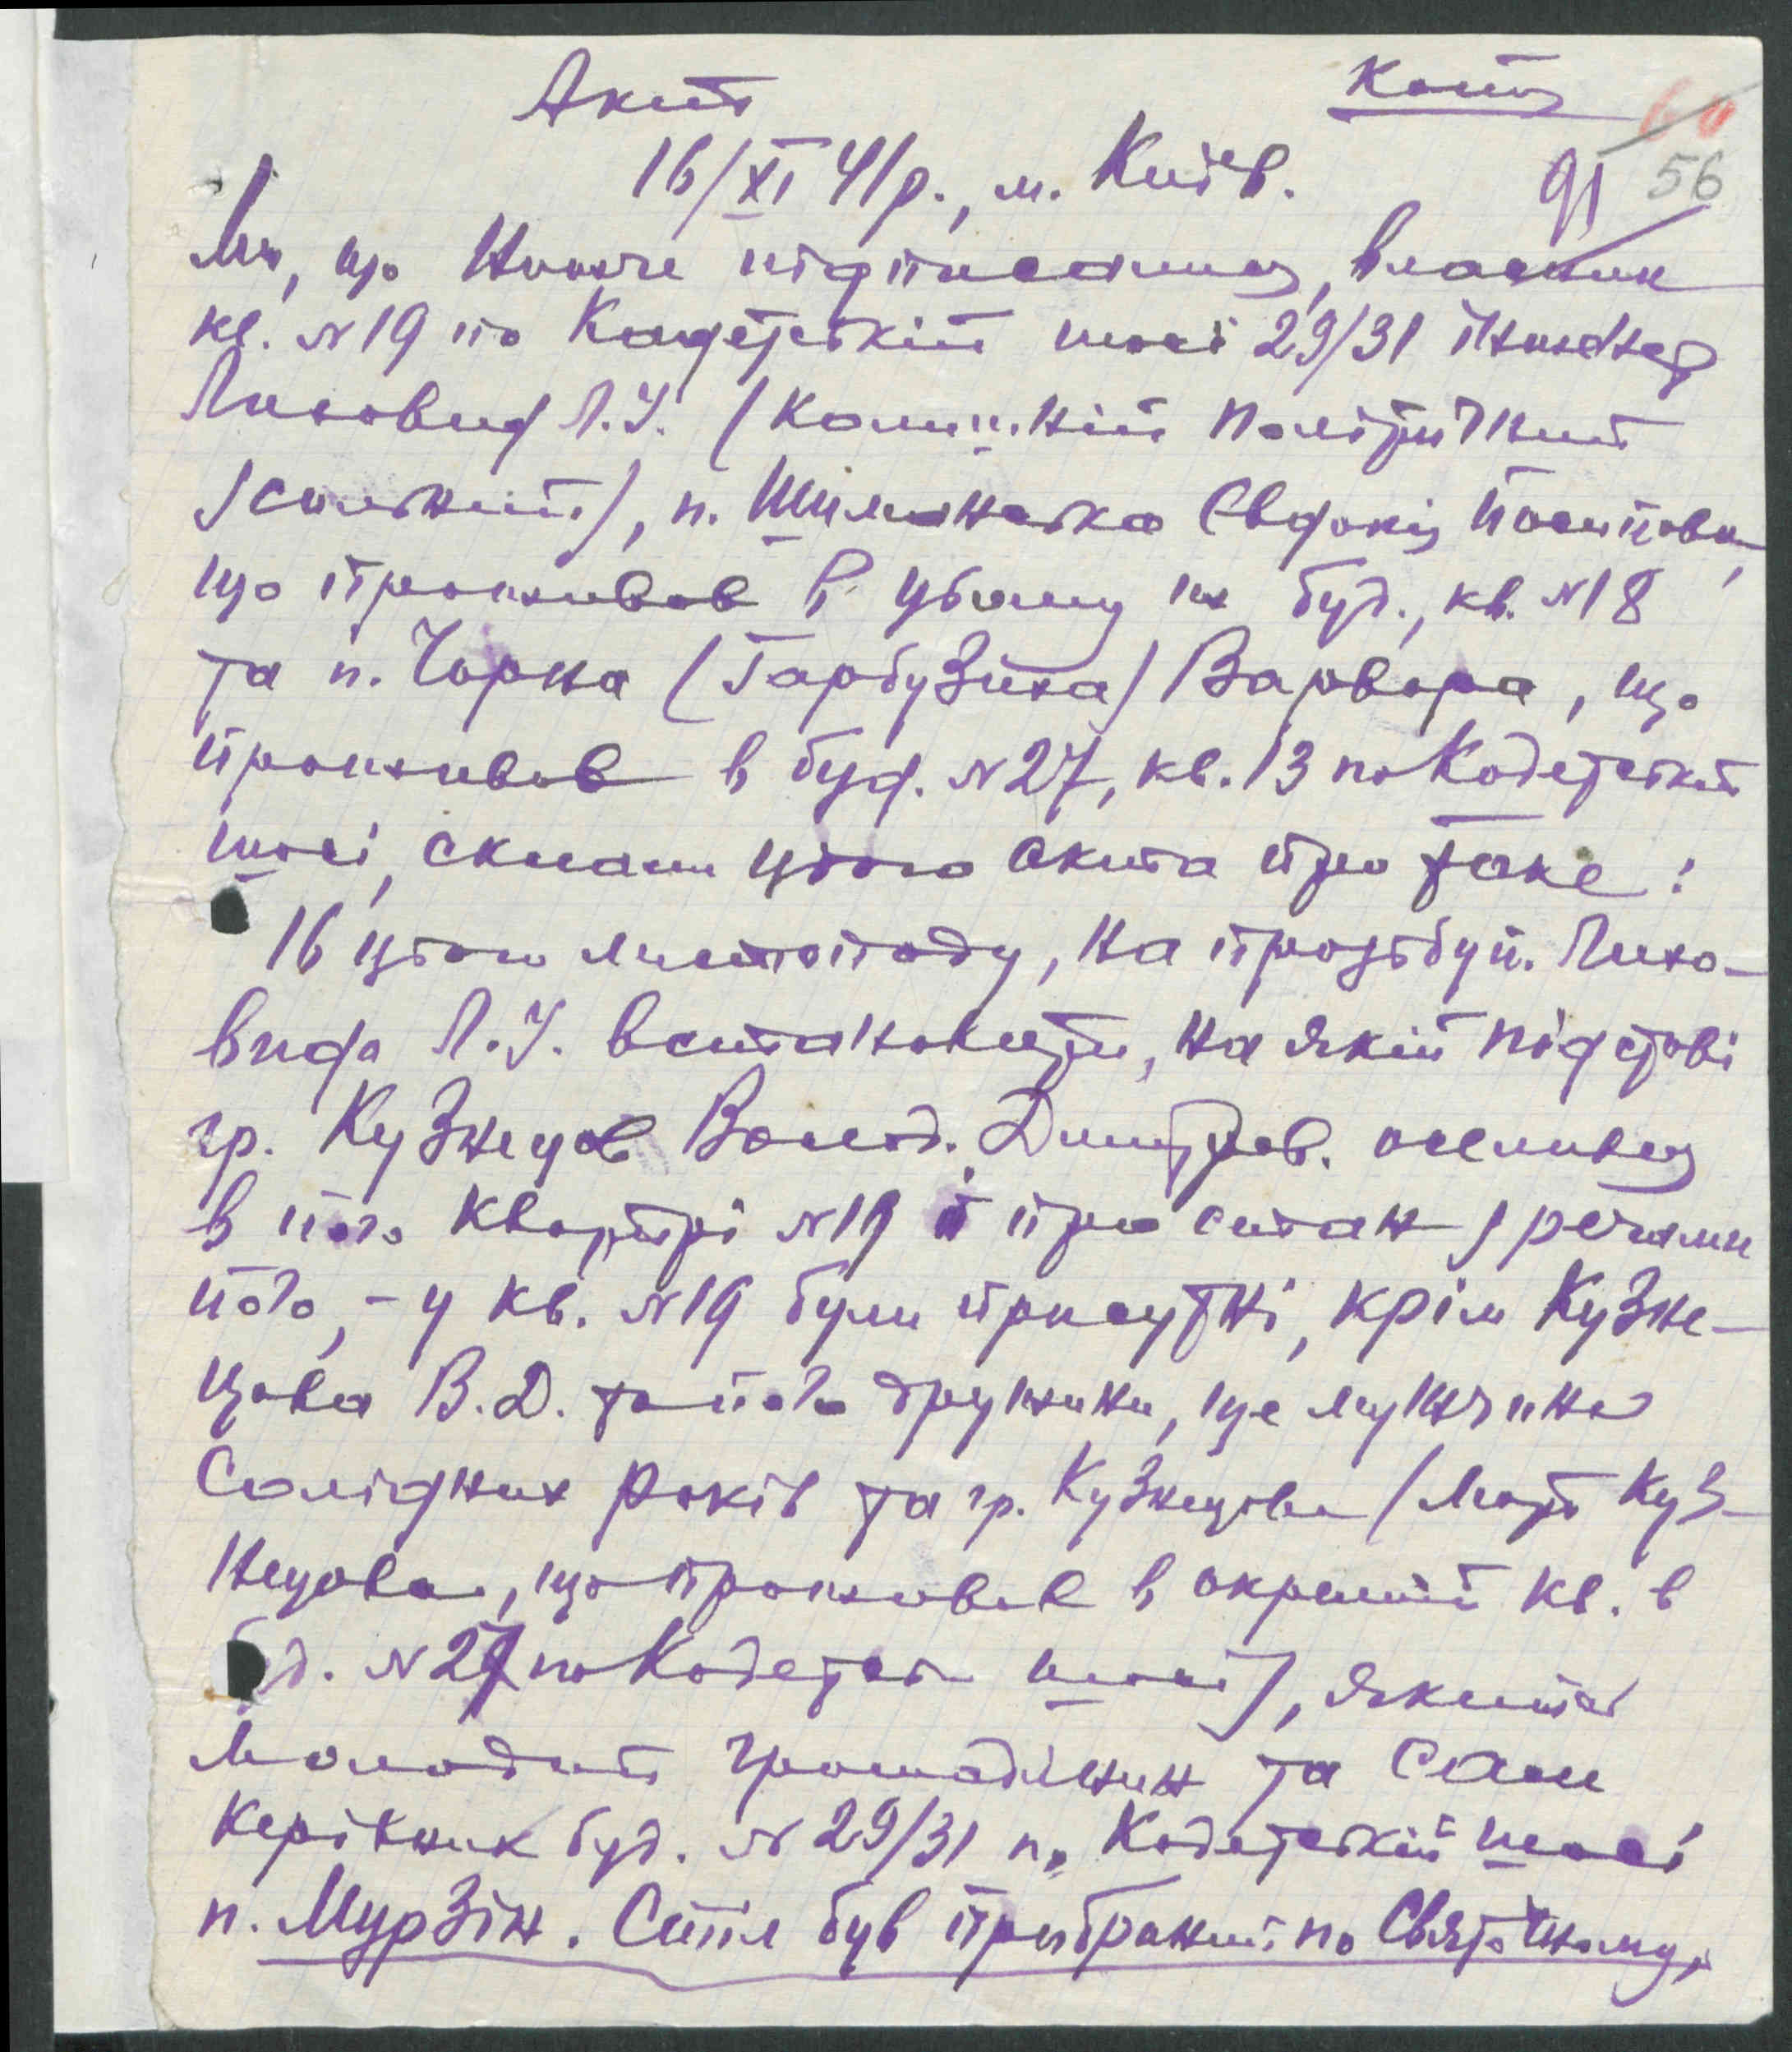 Акт
Копія
60
56
91
16/XI 41 р., м. Київ.
Ми, що нижче підписалися, власник
кв. №19 по Кадетській шосі 29/31 інженер
Лиховид Л.У. (колишній політичний
засильний), п. Шиманська Євдокія Йосипова,
що проживає в цьому ж буд., кв. №18
та п. Чорна (Гарбузіна) Варвара, що
проживає в буд. №27, кв. 13 по Кадетській
шосі, склали цього акта про таке:
16 цього листопаду, на прозьбу п. Лихо-
вида Л.У. встановити, на якій підставі
гр. Кузнецов Волод. Дмитров. оселився
в його квартирі №19 й про стан з речами
його, - у кв. №19 були присутні, крім Кузне-
цова В.Д. та його дружини, ще мужчина
солідних років та гр. Кузнецова (мать Куз-
нецова, що проживає в окремій кв. в
буд. №27 по Кадетськ шосі), якийсь
молодий громадянин та сам
керівник буд. №29/31 по Кадетській шосі
п. Мурзін. Стіл був прибраний по святочному,